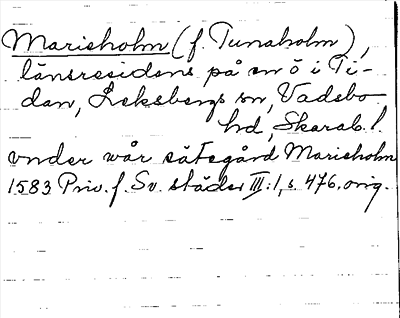 Marieholm (f. Tunaholm),
länsresidens på en ö i Ti-
dan, Leksbergs sn, Vadsbo
hd, Skarab. l.
vnder wår sätegård Marieholm
1583 Priv. f. Sv. städer III:1, s. 476, orig.